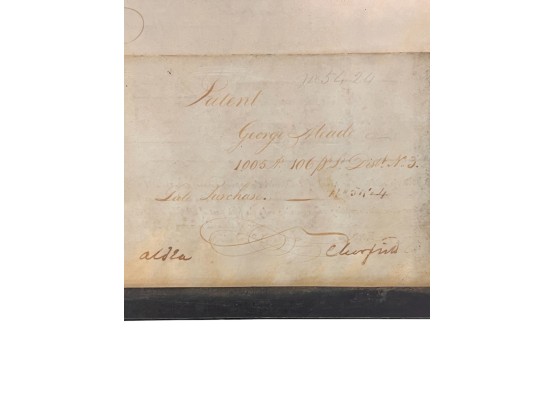 No 5424
Patent
George Meade
1005 A. 106 ps. Dist. No. 3.
Late Purchase. No 5424
Clearfield